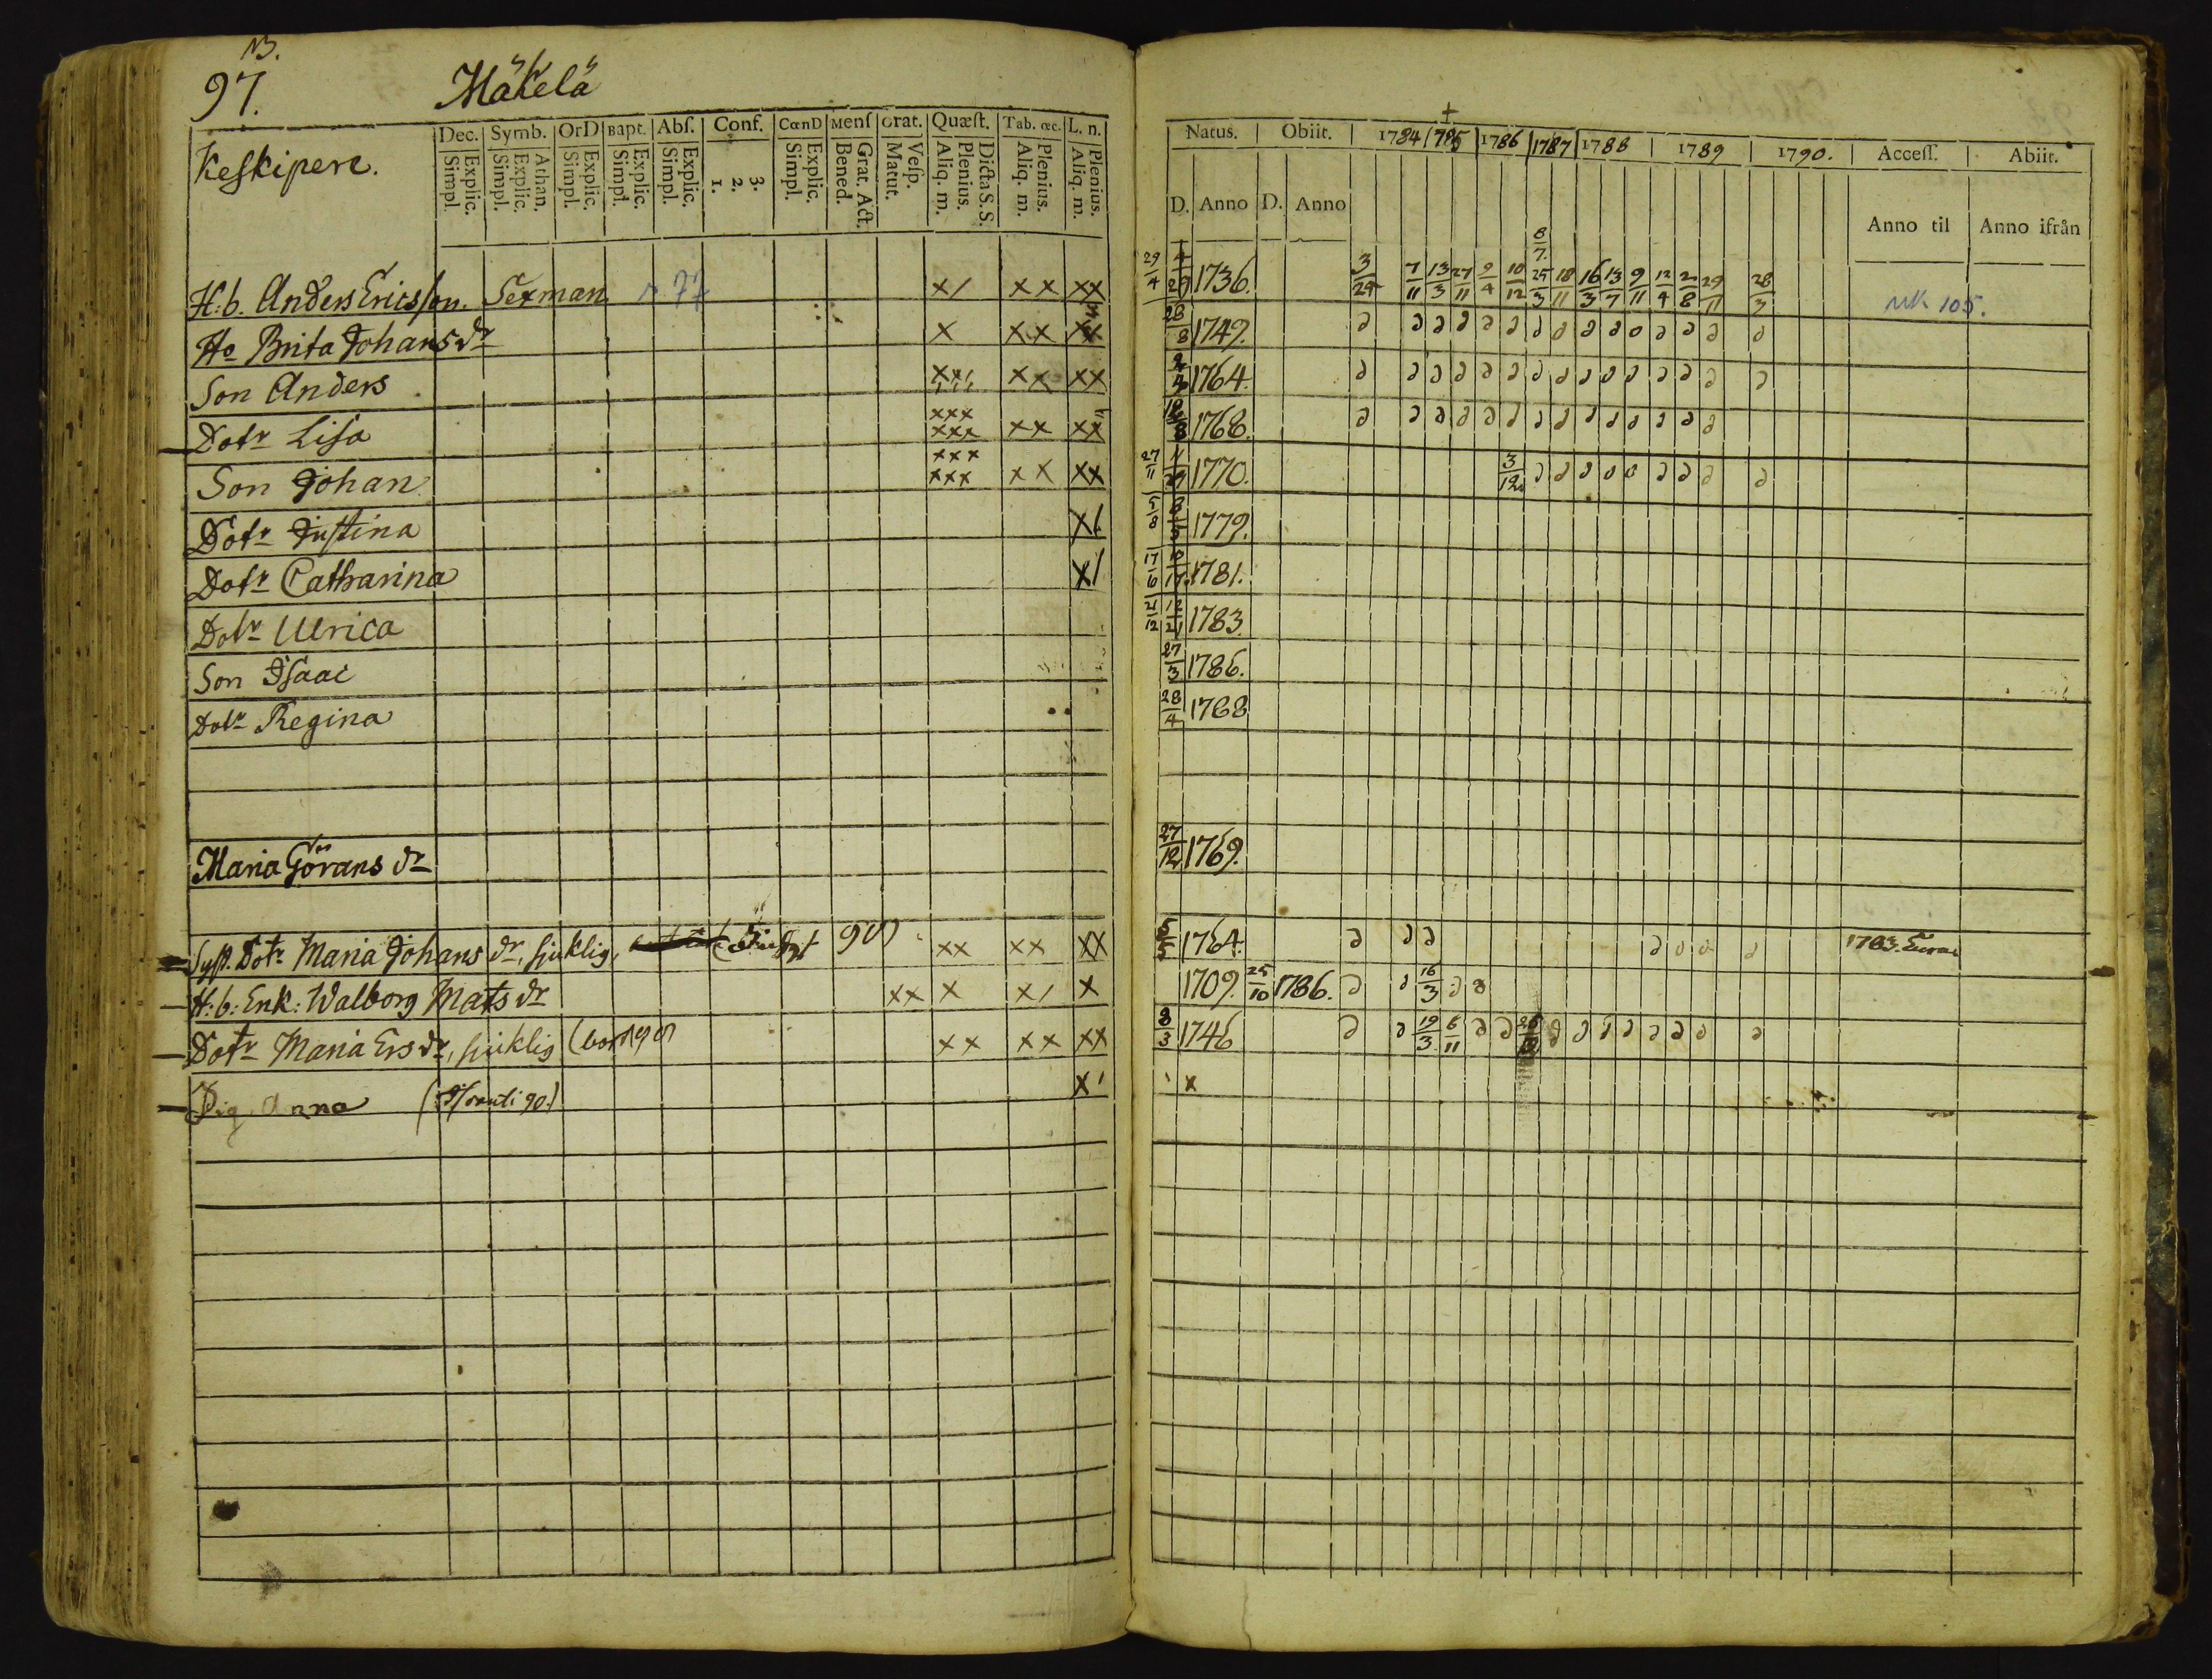 N3.
97. Mäkelä
Keskipere.
Dec. Symb. OrD Bapt. Abſ. Conf. CœnD Menſ Grat. Quæſt. Tab. œc. L. n.
Simpl. Explic. Simpl. Explic. Athan. Simpl. Explic. Simpl. Explic. Simpl. Explic. 1. 2. 3. Simpl. Explic. Bened. Grat. Act. Matut. Veſp. Aliq. m. Plenius. Dicta S. S. Aliq. m. Plenius. Aliq. m. Plenius.
H:b. Anders Ericsson. Sexman 77 x/ xx xx
Ho Brita Johans dr x xx xx
Son Anders xx/ xx xx
Dotr Lisa xxx xxx xx xx
Son Johan xxx xxx xx xx
Dotr Justina x/
Dotr Catharina x/
Dotr Ulrica
Son Isaac
Dotr Regina
Maria Görans dr
Syst. Dotr Maria Johans dr, sjuklig, 90) xx xx xx
H:b: Enk: Walborg Mats dr xx x x/ x
Dotr Maria Ers dr, sjuklig (bort 90) xx xx xx
Pig. Anna 90.) x/
Natus. Obiit. 1784 1785 1786 1787 1788 1789 1790. Acceſſ. Abiit.
D. Anno D. Anno Anno til Anno ifrån
29/4 1736. 3/24 7/11 13/3 27/11 9/4 10/12 8/7. 25/3 18/11 16/3 13/7 9/11 12/4 2/8 29/11 28/3 105.
28/8 1749.
1764.
1768.
27/11 1770. 3/12
5/8 1779.
17/6 10/17 1781.
21/12 12/21 1783.
27/3 1786.
28/4 1788
27/12 1769.
5/5 1764. 1783. Eura
1709. 25/10 1786. 16/3
3/3 1746 19/3 6/11
/ x